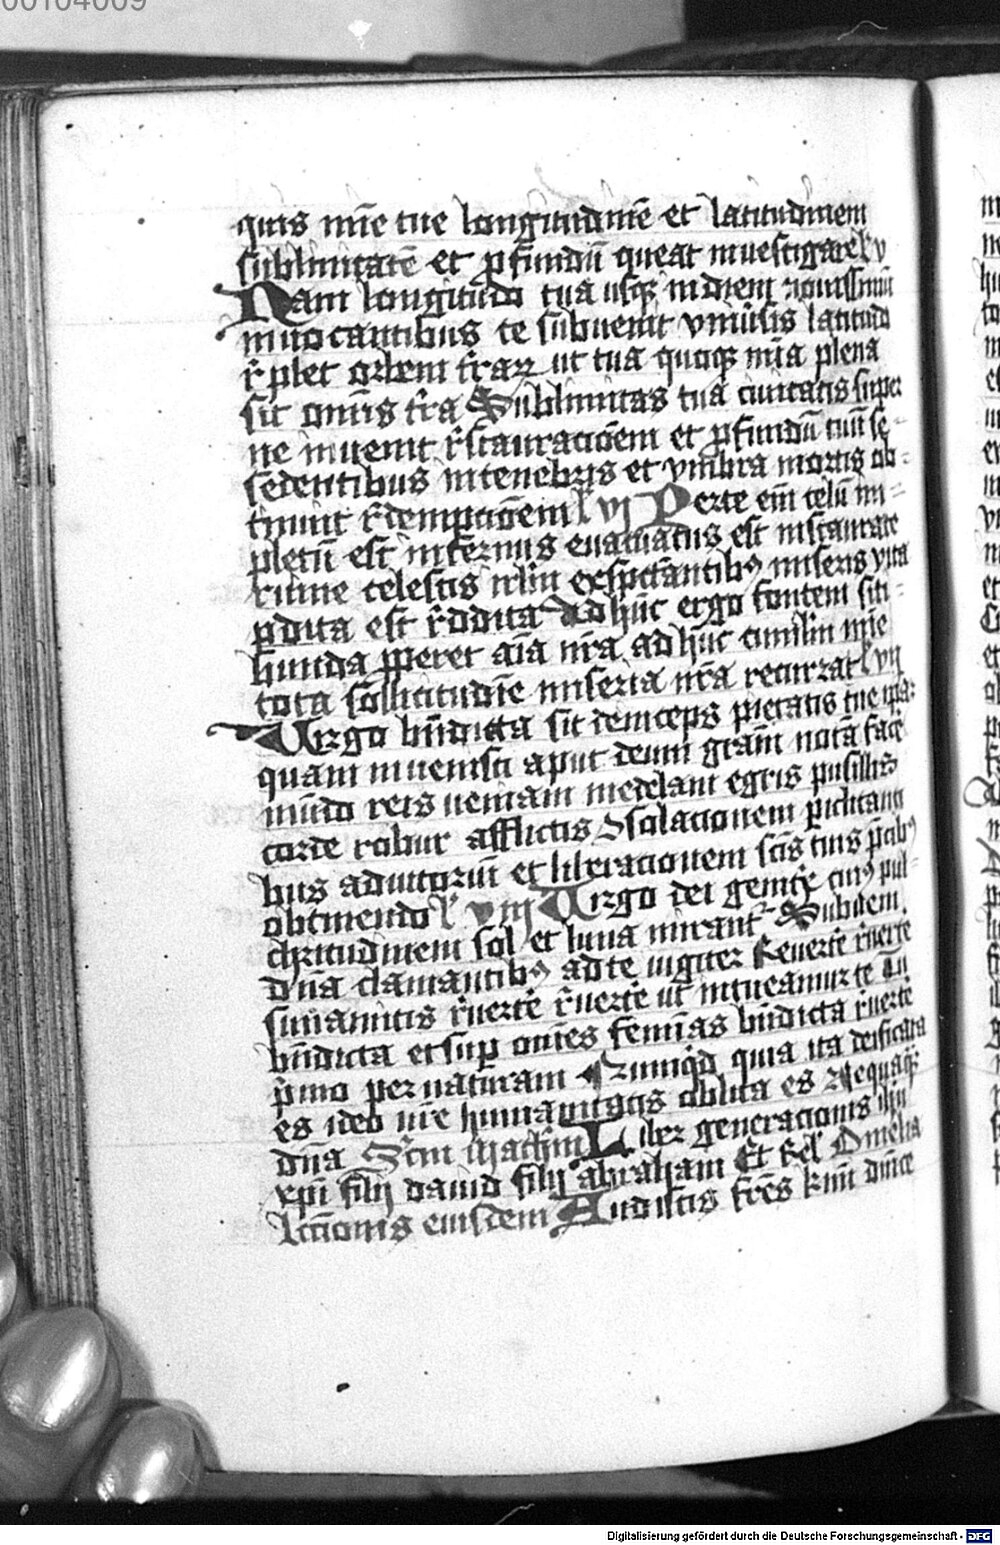 00104009
quis mīe tue longitudinē et latitudinem
sublimitatē et pfundū queat inuestigare lͦ v
Nam longitudo tua usqꝫ in diem nouissimū
inuocantibus te subuenit vniūsis latitudo
rͥplet orbem t̄raꝝ ut tua quoqꝫ mīa plena
sit om̄is t̄ra Sublimitas tua ciuitatis super
ne inuenit rͥstauracōem et pfundū tuū se-
sedentibus in tenebris et vmbra mortis ob-
tinuit rͥdempcōem lͦ vj Per te em̄ celū im-
pletū est infernus euacuatus est instaurate
ruine celestis irl̄m exspectantibꝰ miseris vita
pdita est rͥddita Ad hūc ergo fontem siti-
bunda pperet aīa nr̄a ad hūc cumulū mīe
tota sollicitudīe miseria nr̄a recurrat lͦ vij
Virgo bn̄dicta sit deinceps pietatis tue ipaꝫ
quam inuenisti aput deum grām notā facē
mūdo reis ueniam medelam egris pusillis
corde robur afflictis ꝯsolacionem piclitanti
bus adiutoriū et liberacionem scīs tuis pcibꝰ
obtinendo lͦ viij Virgo dei genitͥx cuiꝰ pul-
chritudinem sol et luna mirant᷑ Subueni
dn̄a clamantibꝰ ad te iugiter Reuerte rͥuerte
sunamitis rͥuerte rͥuerte ut intueamur te Tu
bn̄dicta et sup om̄es feminas bn̄dicta rͥuerte
pͥmo per naturam Nunqͥd quia ita deificata
es ideo nr̄e humanitatis oblita es Nequaqꝫ
dn̄a Scd̄m Mathm̄ Liber generacionis ihū
xpī filij dauid filij abraham Et rel̄ Omelia
lcc̄ionis eiusdem Audistis fr̄es kmī
Digitalisierung gefördert durch die Deutsche Forschungsgemeinschaft - DFG